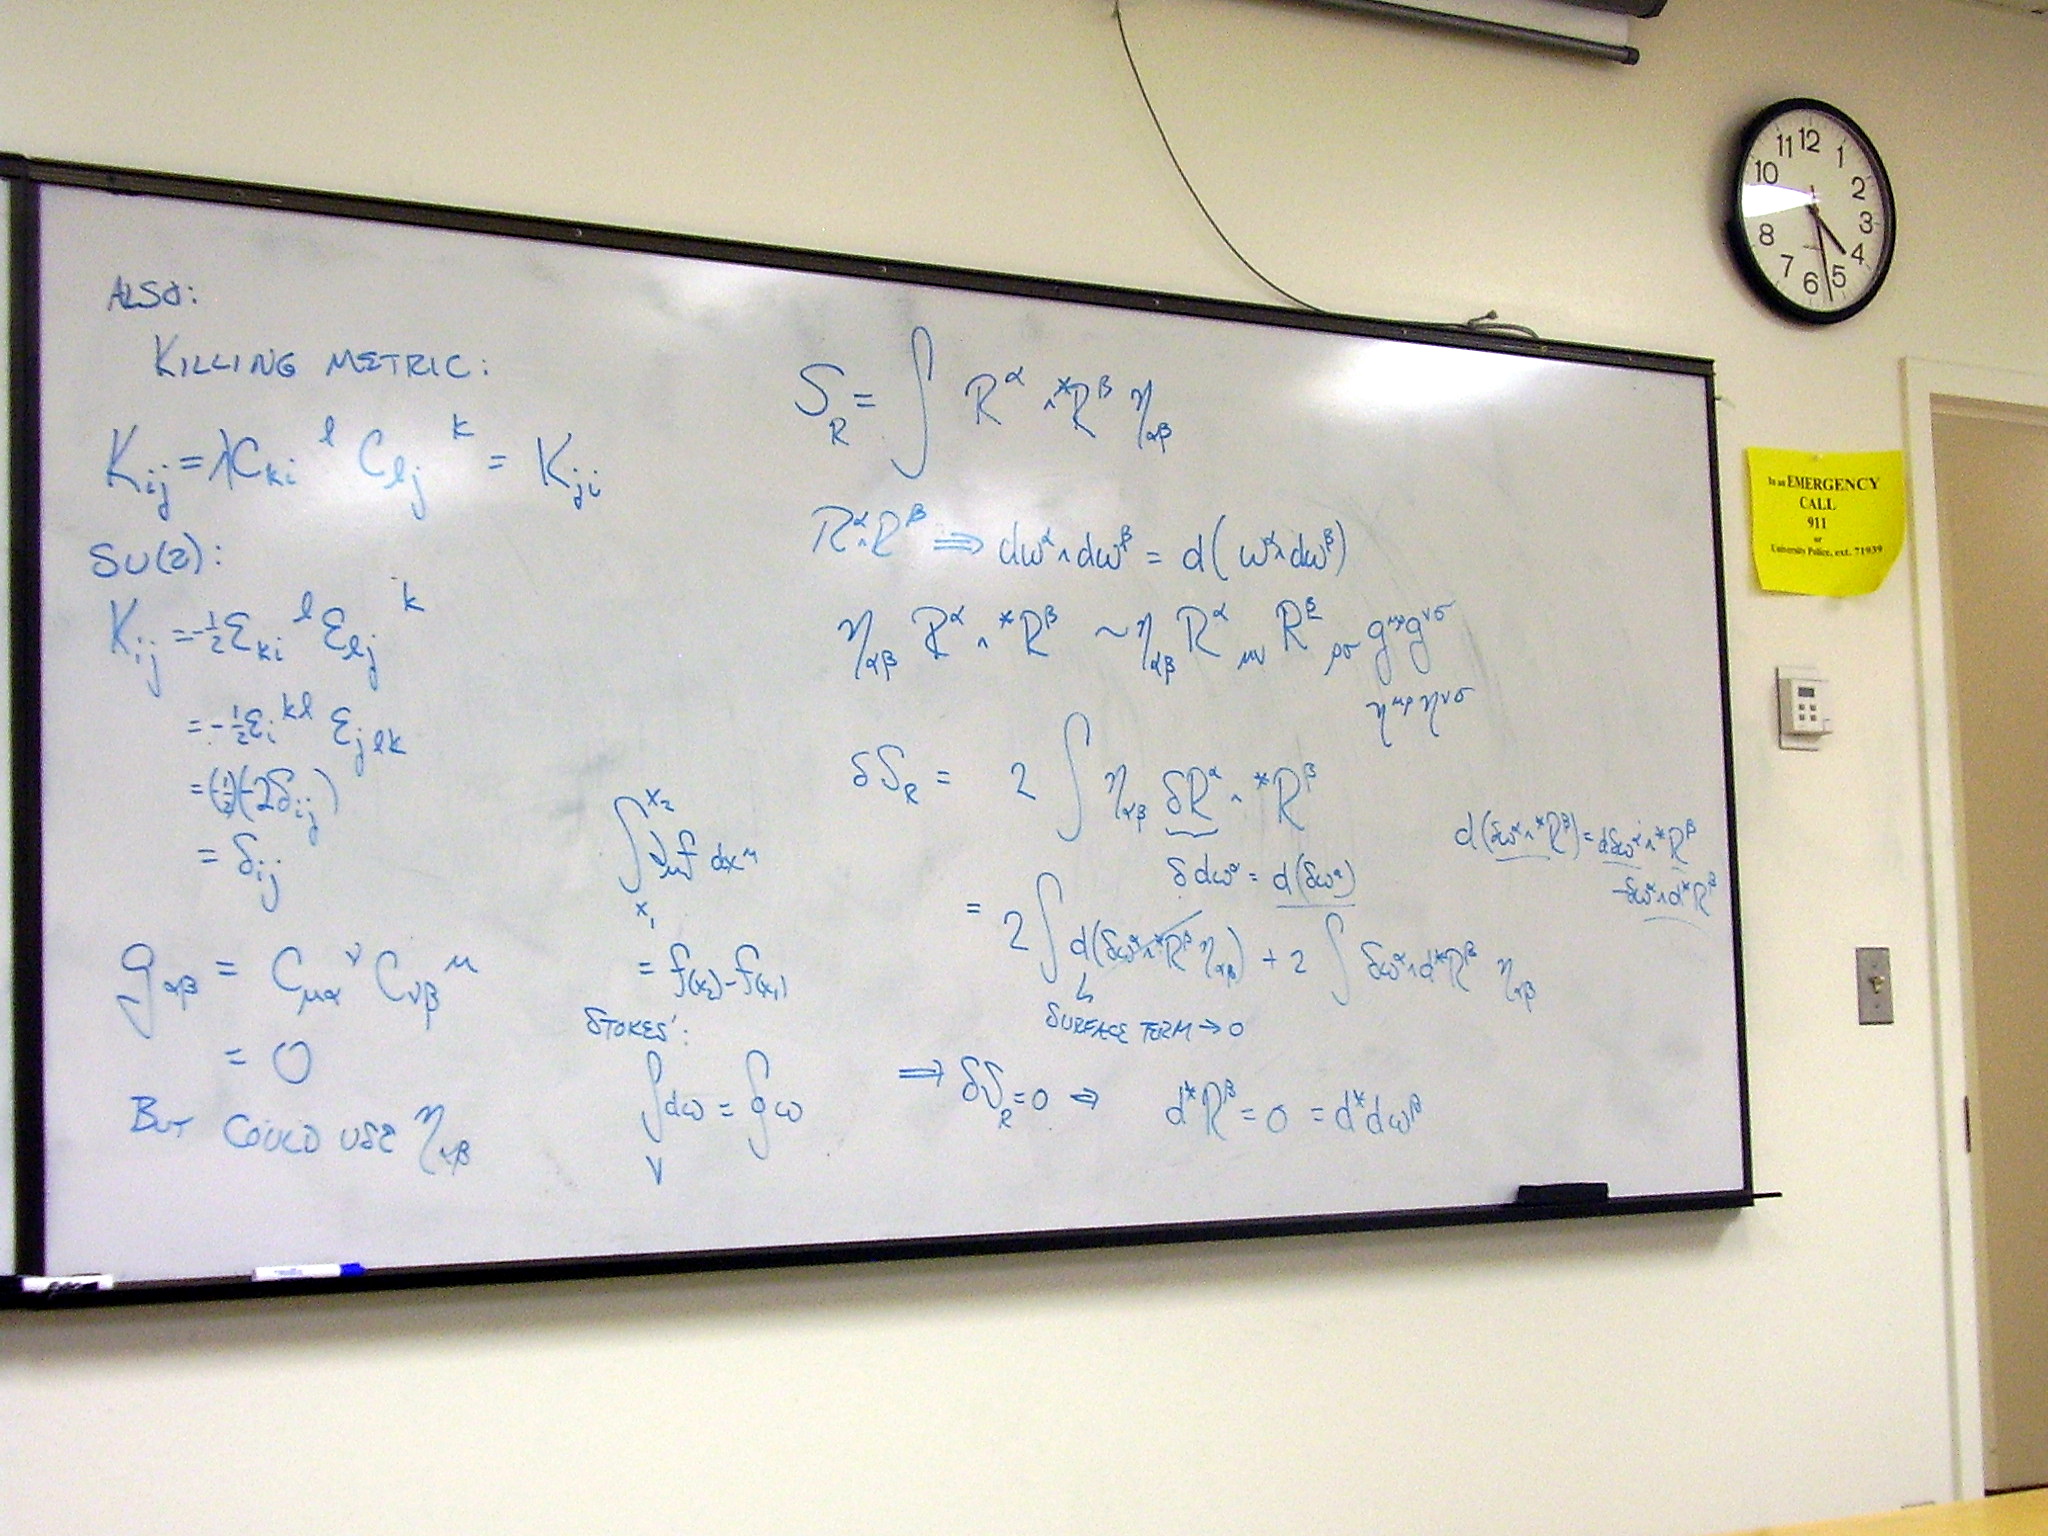 ALSO:
KILLING METRIC:
K_{ij} = λC_{ki}^l C_{lj}^k = K_{ji}
SU(2):
K_{ij} = -½ε_{ki}^l ε_{lj}^k
= -½ε_i^{kl} ε_{jlk}
= (-½)(-2δ_{ij})
= δ_{ij}
g_{αβ} = C_{μα}^ν C_{νβ}^μ
= 0
BUT COULD USE η_{αβ}
∫_{x_1}^{x_2} ∂_μf dx^μ
= f(x_2)-f(x_1)
STOKES':
∫_V dω = ∮ω
S_R = ∫ R^α ∧ *R^β η_{αβ}
R^α∧R^β ⇒ dω^α∧dω^β = d(ω^α∧dω^β)
η_{αβ} R^α ∧ *R^β ~ η_{αβ} R^α_{μν} R^β_{ρσ} g^{μρ}g^{νσ}
η^{μρ}η^{νσ}
δS_R = 2∫ η_{αβ} δR^α ∧ *R^β
δdω^α = d(δω^α)
= 2∫d(δω^α∧*R^β η_{αβ}) + 2∫δω^α∧d*R^β η_{αβ}
SURFACE TERM → 0
⇒ δS_R = 0 ⇒ d*R^β = 0 = d*dω^β
d(δω^α∧*R^β) = dδω^α∧*R^β
-δω^α∧d*R^β
11 12 1
10 2
3
8 4
7 6 5
In an EMERGENCY
CALL
911
or
University Police, ext. 71939